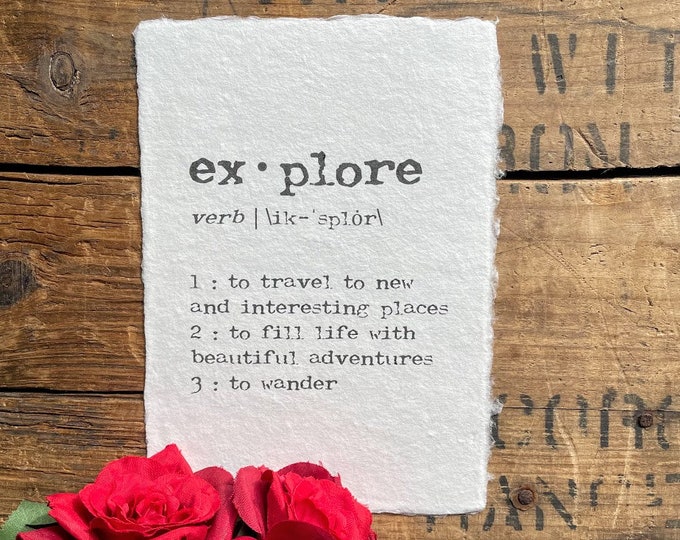 ex·plore
verb | \ik-ˈsplȯr\
1 : to travel to new
and interesting places
2 : to fill life with
beautiful adventures
3 : to wander
WIT